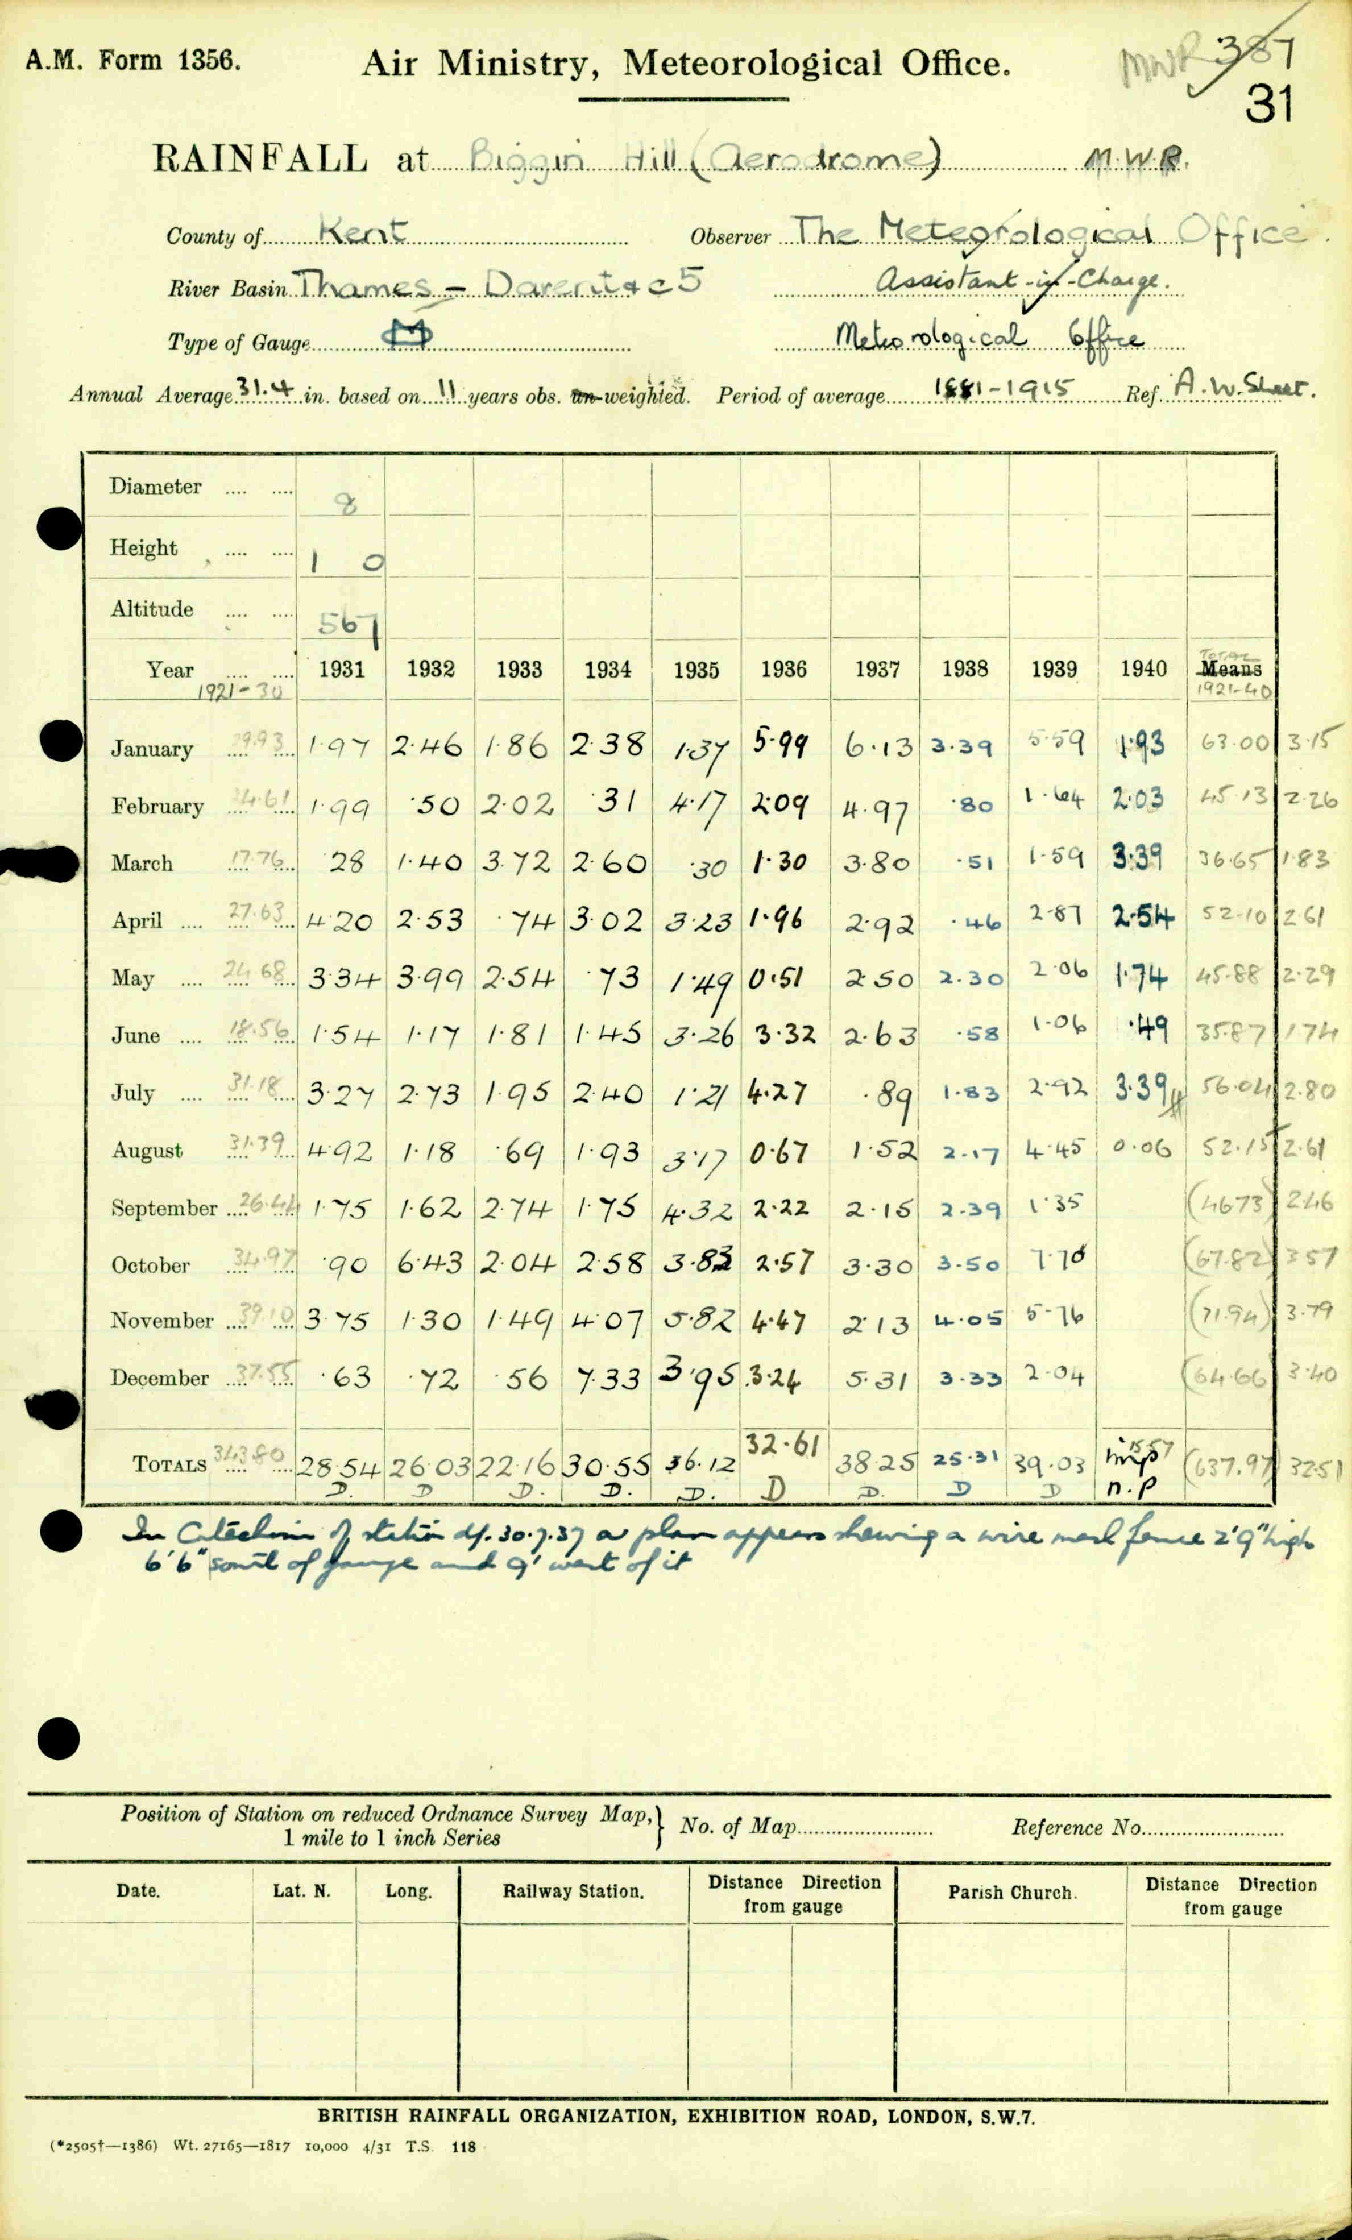 A.M. Form 1356.
Air Ministry, Meteorological Office.
MWR 387
31
RAINFALL at Biggin Hill (Aerodrome) M.W.R.
County of Kent Observer The Meteorological Office.
River Basin Thames - Darent &c 5 Assistant-in-Charge.
Type of Gauge M Meteorological Office
Annual Average 31.4 in. based on 11 years obs. un-weighted. Period of average 1881-1915 Ref. A.W. Sheet.
Diameter .... .... 8
Height .... .... 1 0
Altitude .... .... 567
Year .... .... 1931 1932 1933 1934 1935 1936 1937 1938 1939 1940 Total Means
1921-30 1921-40
January 29.93 1.97 2.46 1.86 2.38 1.37 5.99 6.13 3.39 5.59 1.93 63.00 3.15
February 24.61 1.99 .50 2.02 .31 4.17 2.09 4.97 .80 1.64 2.03 45.13 2.26
March 17.76 .28 1.40 3.72 2.60 .30 1.30 3.80 .51 1.59 3.39 36.65 1.83
April 27.63 4.20 2.53 .74 3.02 3.23 1.96 2.92 .46 2.87 2.54 52.10 2.61
May 24.68 3.34 3.99 2.54 .73 1.49 0.51 2.50 2.30 2.06 1.74 45.88 2.29
June 18.56 1.54 1.17 1.81 1.45 3.26 3.32 2.63 .58 1.06 .49 35.87 1.74
July 31.18 3.27 2.73 1.95 2.40 1.21 4.27 .89 1.83 2.92 3.39 56.04 2.80
August 31.39 4.92 1.18 .69 1.93 3.17 0.67 1.52 2.17 4.45 0.06 52.15 2.61
September 26.44 1.75 1.62 2.74 1.75 4.32 2.22 2.15 2.39 1.35 (46.73) 2.46
October 34.97 .90 6.43 2.04 2.58 3.83 2.57 3.30 3.50 7.70 (67.82) 3.57
November 39.10 3.75 1.30 1.49 4.07 5.82 4.47 2.13 4.05 5.76 (71.94) 3.79
December 37.55 .63 .72 .56 7.33 3.95 3.24 5.31 3.33 2.04 (64.66) 3.40
TOTALS 343.80 28.54 26.03 22.16 30.55 36.12 32.61 38.25 25.31 39.03 15.57 imp (637.97) 32.51
D. D D. D. D. D D. D D n.p
In Catechism of station df. 30.7.37 a plan appears shewing a wire mesh fence 2'9" high
6'6" south of gauge and 9' west of it
Position of Station on reduced Ordnance Survey Map,} No. of Map Reference No.
1 mile to 1 inch Series
Date. Lat. N. Long. Railway Station. Distance Direction from gauge Parish Church. Distance Direction from gauge
BRITISH RAINFALL ORGANIZATION, EXHIBITION ROAD, LONDON, S.W.7.
(*2505†—1386) Wt. 27165—1817 10,000 4/31 T.S. 118